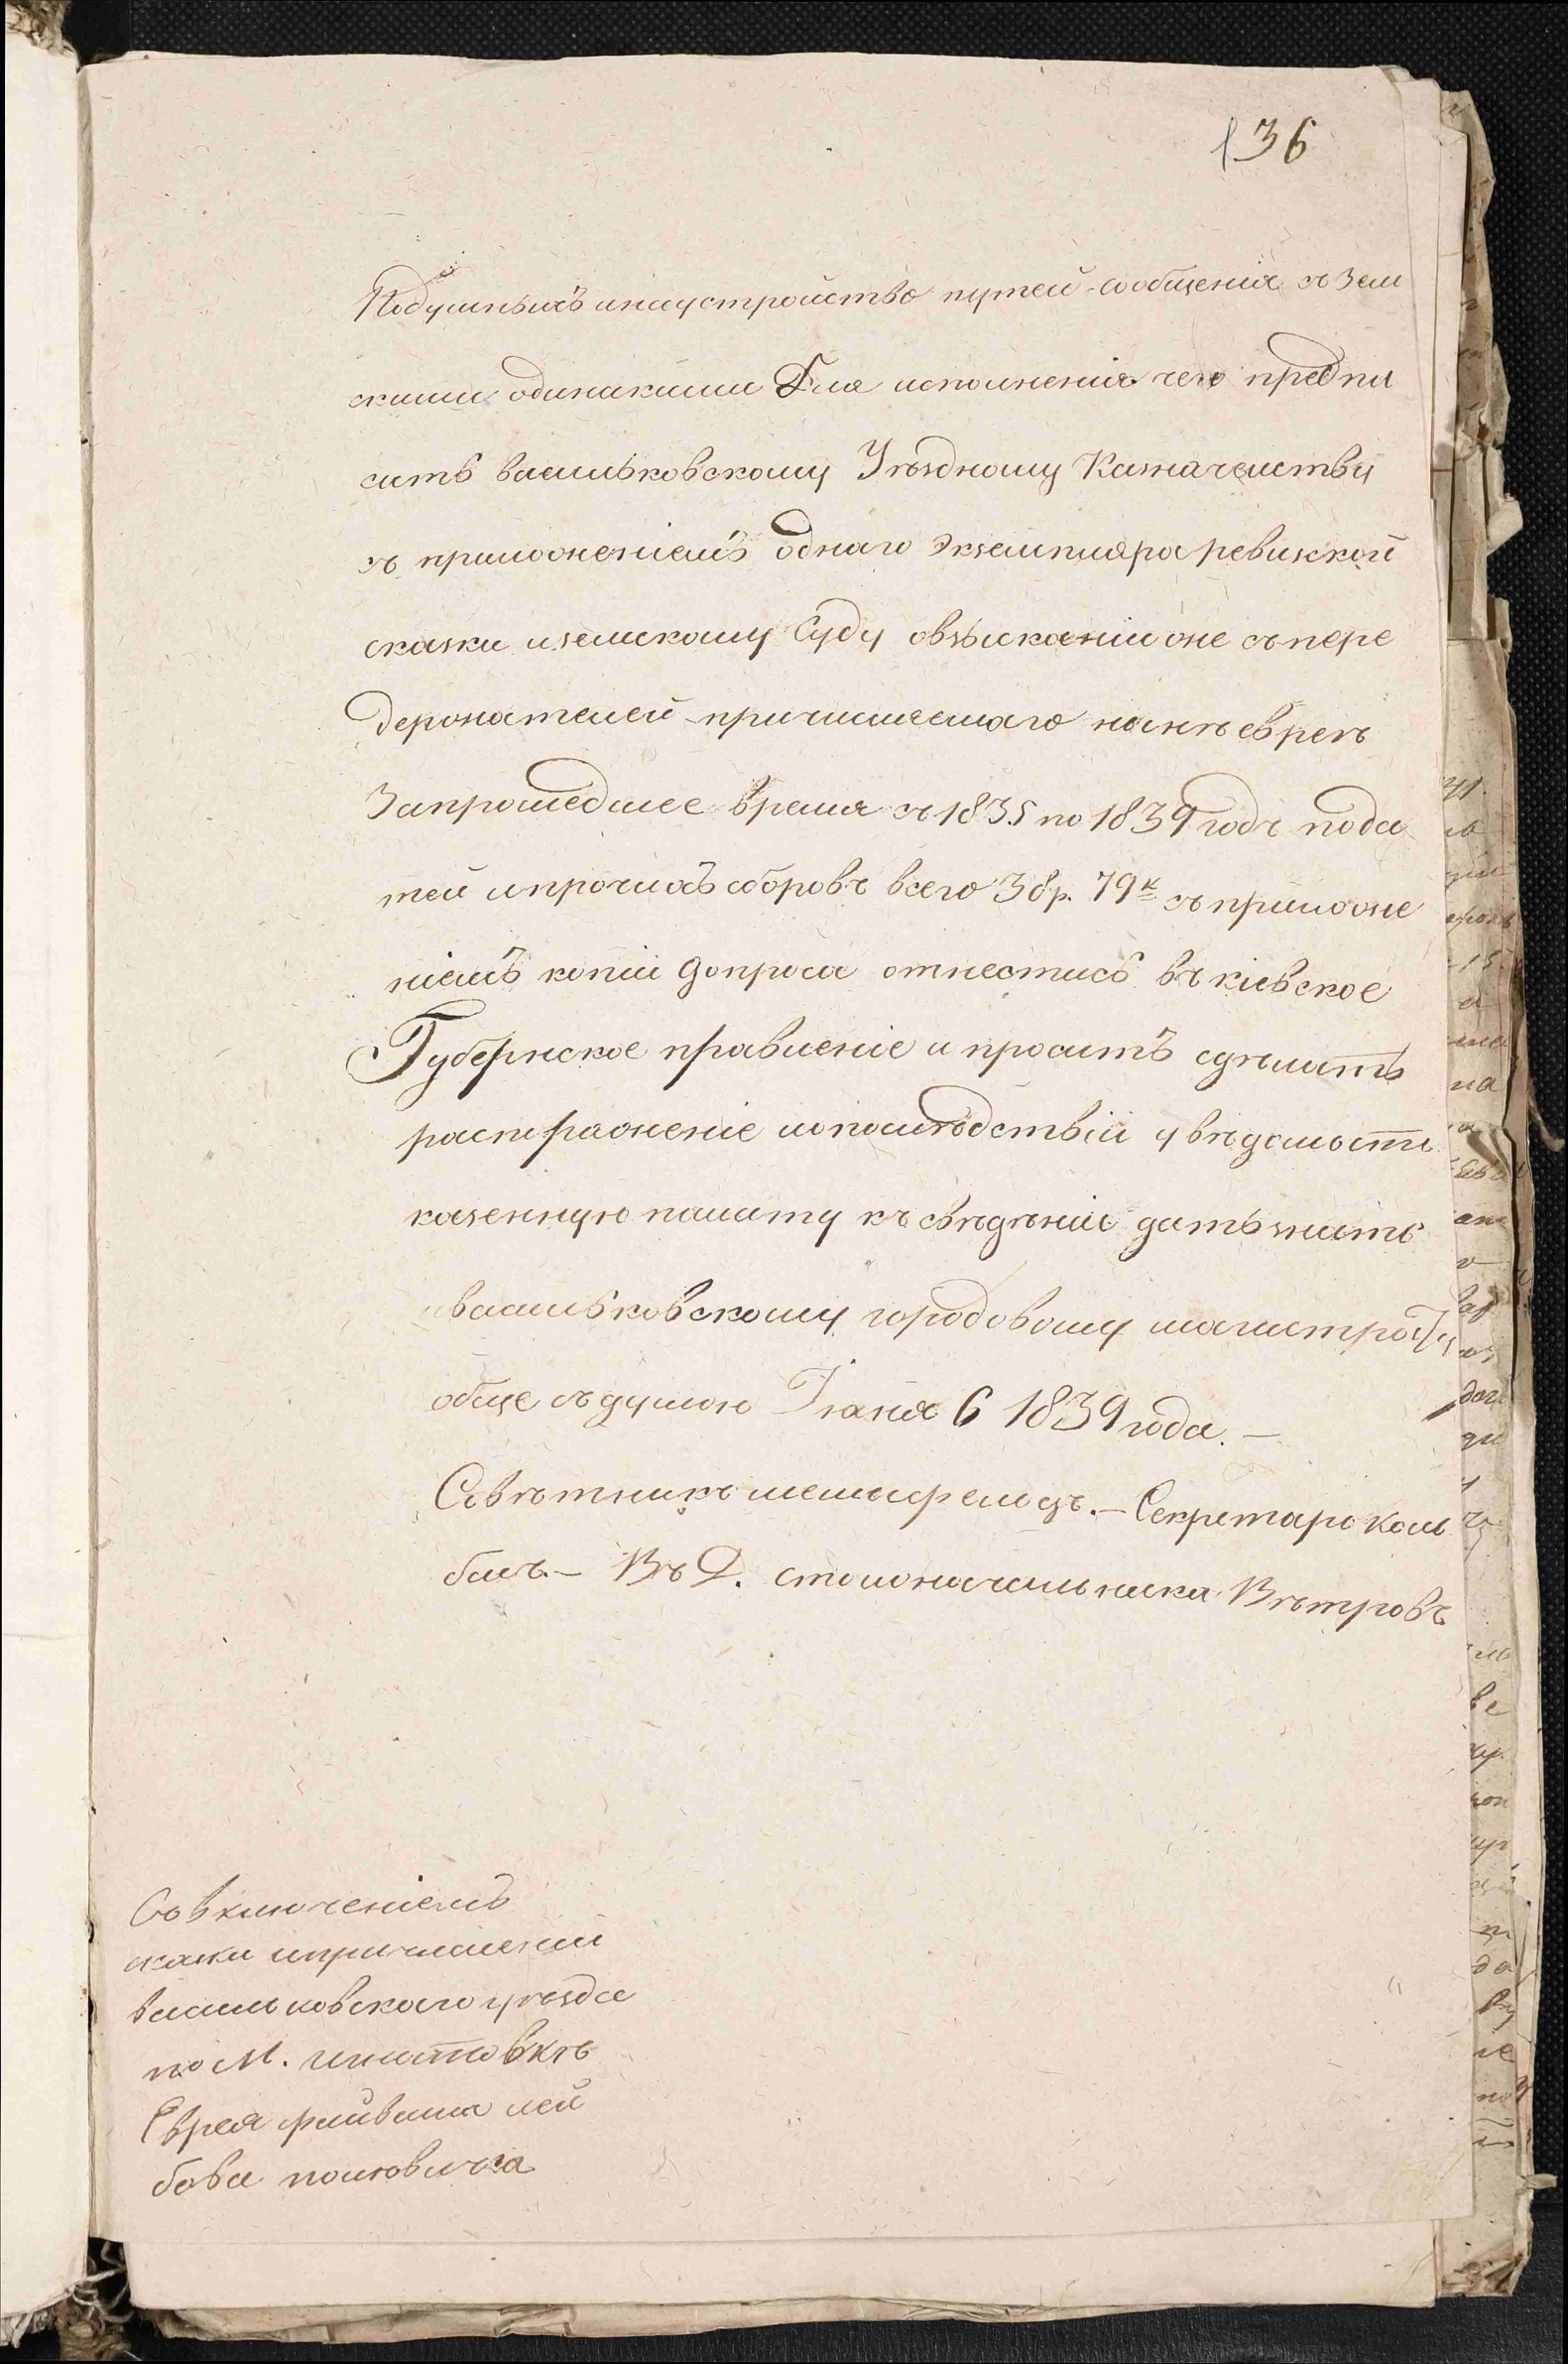 136
Подушныхъ инаустройство путей сообщенія съ зем
скими одинакими Для исполненія чего предпи
сать васильковскому Уѣздному Казначейству
съ приложеніемъ однаго экземпляра ревизской
сказки иземскому Суду овзысканіи оне съпере
держателей причисляемаго нынѣ еврея
Запрошедшее время съ 1835 по 1839 годъ пода
тей ипрочихъ сборовъ всего 38 р. 79 к съ приложе
ніемъ копіи допроса отнестись въ кіевское
Губернское правленіе и просить сдѣлать
распоряженіе ипослѣдствіи увѣдомить
казенную палату къ свѣдѣнію дать знать
васильковскому городовому магистрату
обще съ думою Іюня 6 1839 года. —
Совѣтникъ — Секретарь Коль
бихъ. — Въ Д. столоначальника Вѣтровъ
Совключеніемъ
скаски ипричисленіи
васильковскаго уѣзда
по М. Игнатовкѣ
Еврея файвиша лей
бова